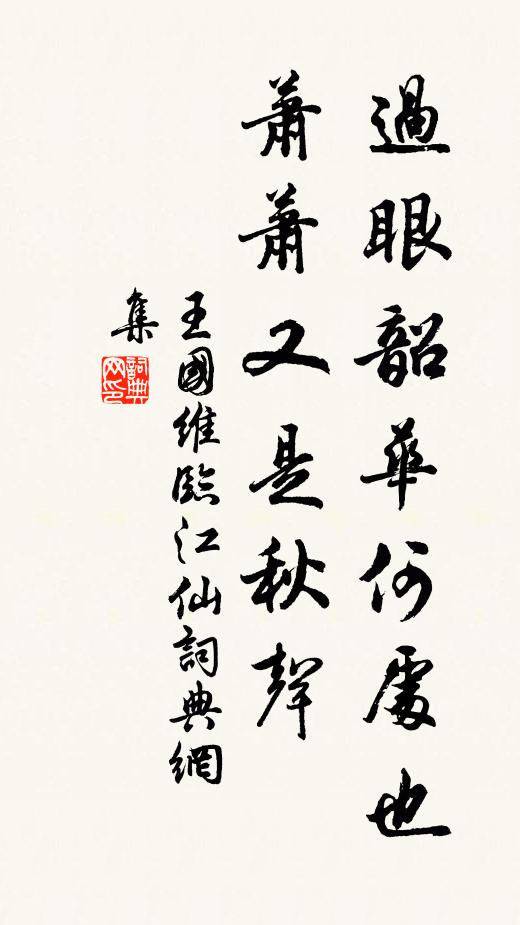 過眼韶華何處也
蕭蕭又是秋聲
王國維臨江仙詞典網
集
詞典網印